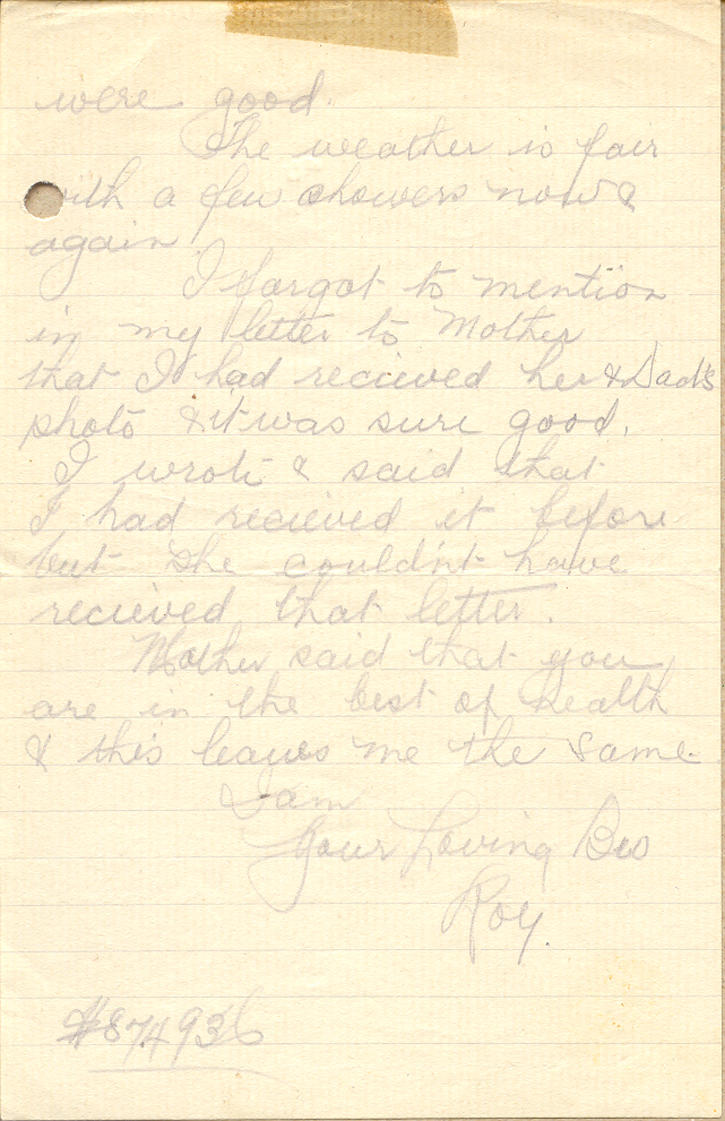 were good.
The weather is fair
with a few showers now &
again.
I forgot to mention
in my letter to Mother
that I had recieved her & Dad's
photo & it was sure good.
I wrote & said that
I had recieved it before
but she couldn't have
recieved that letter.
Mother said that you
are in the best of health
& this leaves me the same.
I am
Your Loving Bro
Roy.
#874936